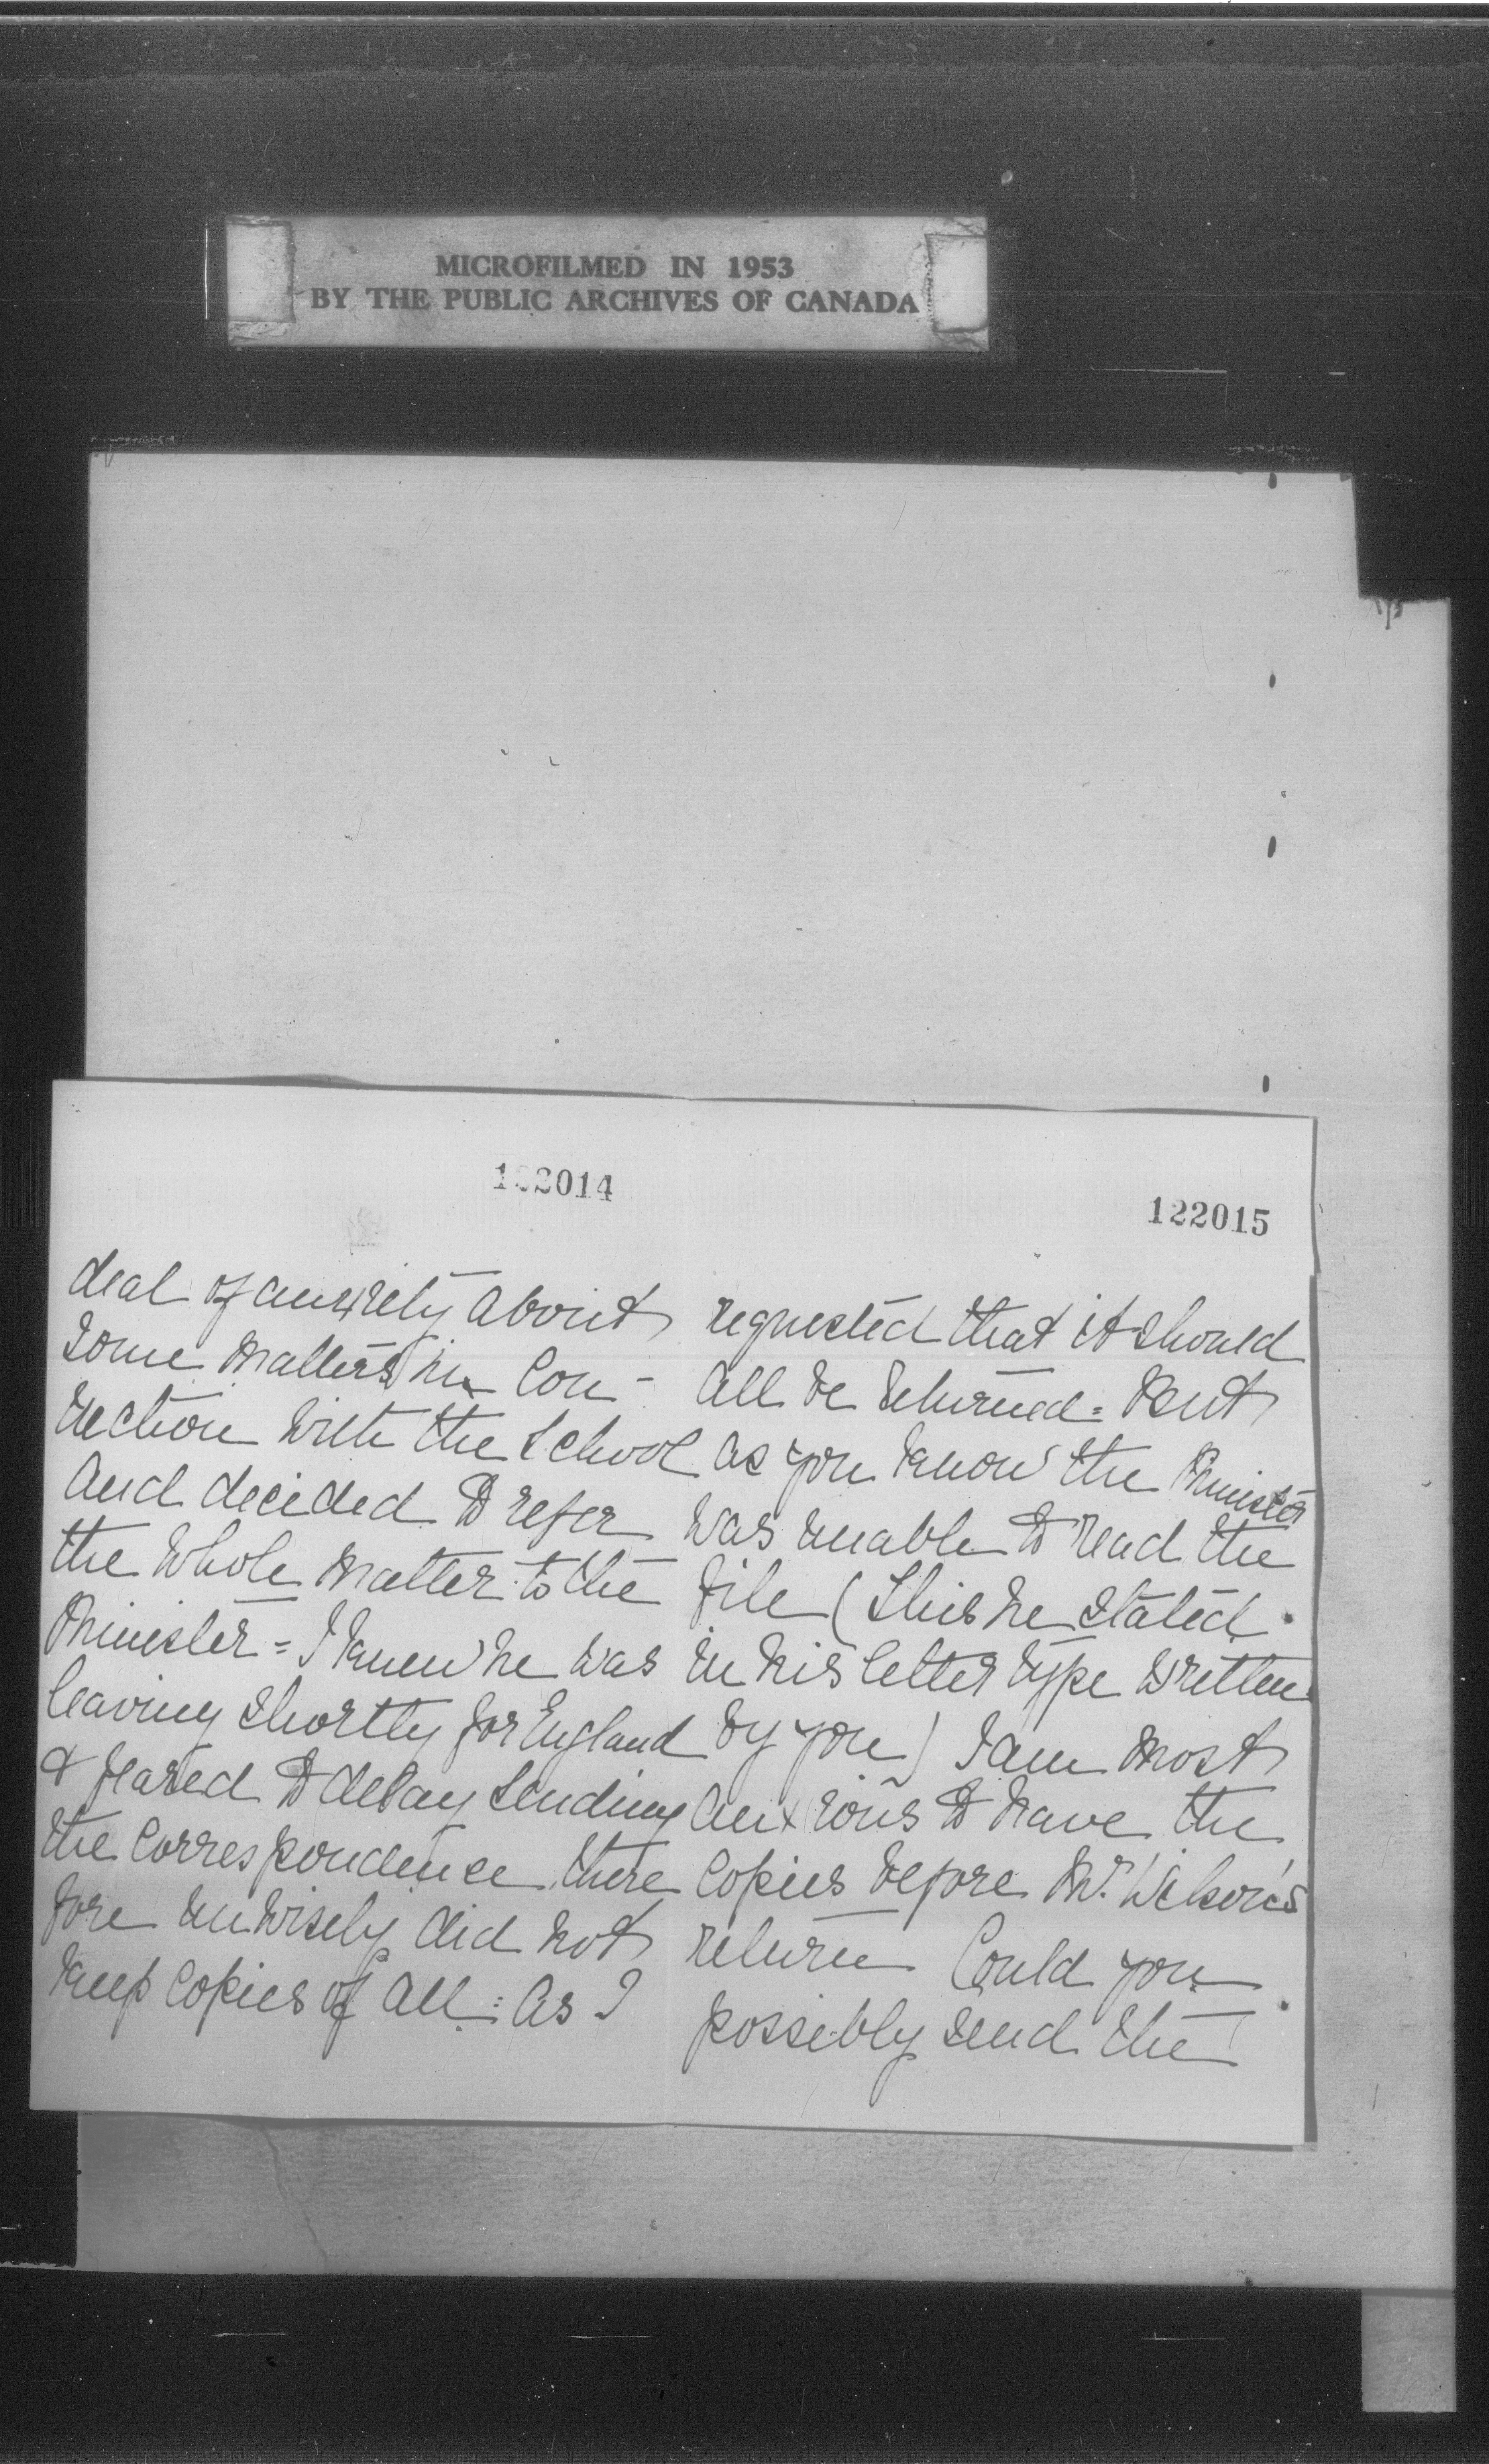 MICROFILMED IN 1953
BY THE PUBLIC ARCHIVES OF CANADA
122014
deal of anxiety about
some matters in Con-
nection with the School
and decided to refer
the whole matter to the
Minister = I knew he was
leaving shortly for England
& feared to delay sending
the correspondence there
fore unwisely did not
keep copies of all = As I
122015
requested that it should
all be returned = But
as you know the Minister
was unable to read the
file (This he stated
in his letter type written
by you) I am most
anxious to have the
copies before Mr. Wilson's
return Could you
possibly send the